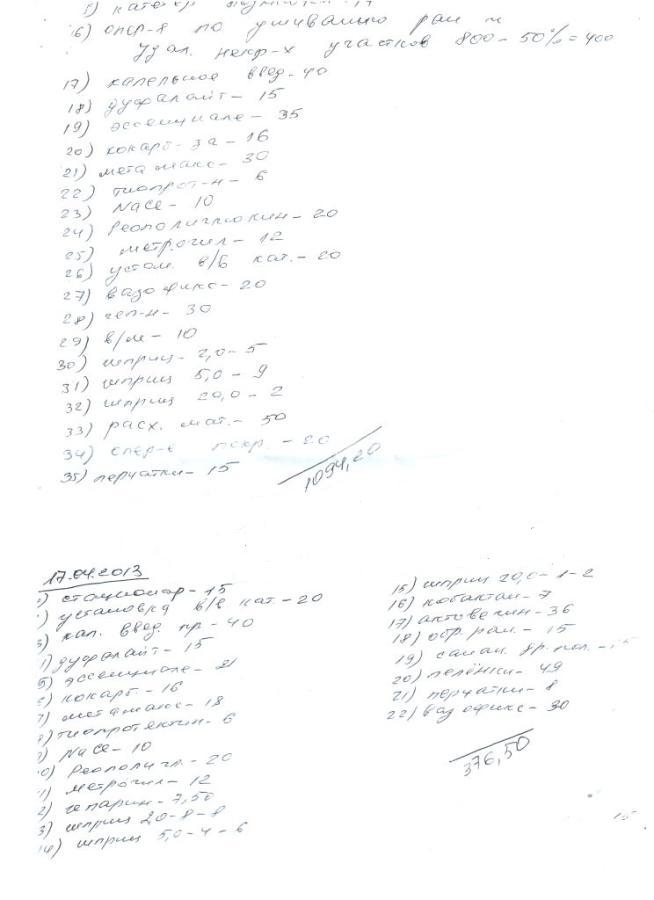 16) опер-я по ушиванию ран и
удал. некр-х участков 800 - 50% = 400
17) капельное введ - 40
18) дуфалайт - 15
19) эссенциале - 35
20) кокарб-за - 16
21) метамакс - 30
22) тиопрот-н - 6
23) NaCe - 10
24) Реополиглюкин - 20
25) метрогил - 12
26) устан. в/в кат. - 20
27) вазофикс - 20
28) геп-н - 30
29) в/м - 10
30) шприц - 2,0 - 5
31) шприц 5,0 - 9
32) шприц 20,0 - 2
33) расх. мат. - 50
34) - 20
35) перчатки - 15
1094,20
17.04.2013
стационар - 15
установка в/в кат. - 20
кап. введ. пр. - 40
дуфалайт - 15
5) эссенциале - 21
кокарб - 16
7) метамакс - 18
тиопротектин - 6
NaCe - 10
Реополигл. - 20
метрогил - 12
2) гепарин - 7,50
3) шприц 2.0 - 8 - 8
14) шприц 5,0 - 4 - 6
15) шприц 20,0 - 1 - 2
16) кобактан - 7
17) актовегин - 36
18) обр. ран. - 15
19)
20) пелёнки - 49
21) перчатки - 8
22) вазофикс - 30
376,50